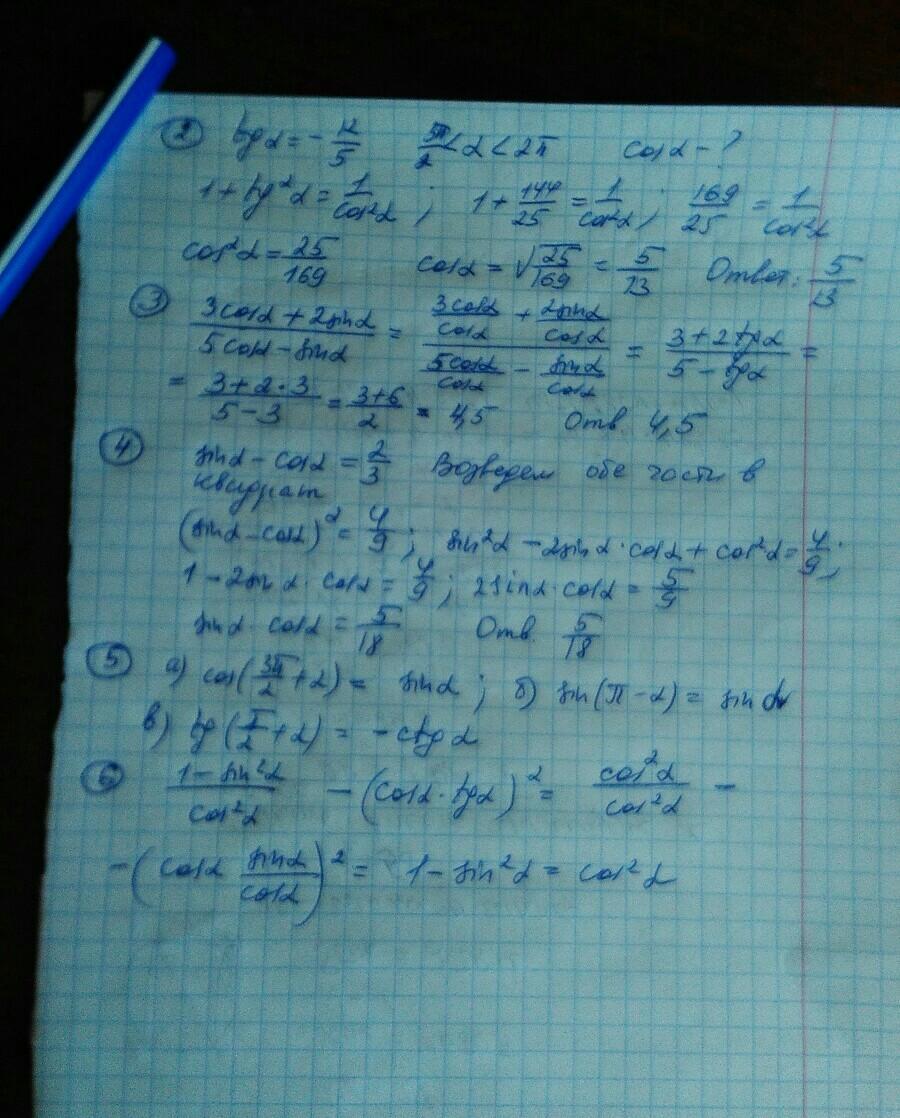 ② tgα = -12/5   3π/2 < α < 2π   cosα - ?
1 + tg²α = 1/cos²α ; 1 + 144/25 = 1/cos²α ; 169/25 = 1/cos²α
cos²α = 25/169   cosα = √(25/169) = 5/13   Ответ: 5/13
③ (3cosα + 2sinα)/(5cosα - sinα) = (3cosα/cosα + 2sinα/cosα)/(5cosα/cosα - sinα/cosα) = (3 + 2tgα)/(5 - tgα) =
= (3 + 2·3)/(5 - 3) = (3+6)/2 = 4,5   Отв. 4,5
④ sinα - cosα = 2/3   Возведем обе части в
квадрат
(sinα - cosα)² = 4/9 ; sin²α - 2sinα · cosα + cos²α = 4/9 ;
1 - 2sinα · cosα = 4/9 ; 2sinα · cosα = 5/9
sinα · cosα = 5/18   Отв. 5/18
⑤ а) cos(3π/2 + α) = sinα ; б) sin(π - α) = sinα
в) tg(π/2 + α) = -ctgα
⑥ (1 - sin²α)/cos²α - (cosα · tgα)² = cos²α/cos²α -
- (cosα sinα/cosα)² = 1 - sin²α = cos²α